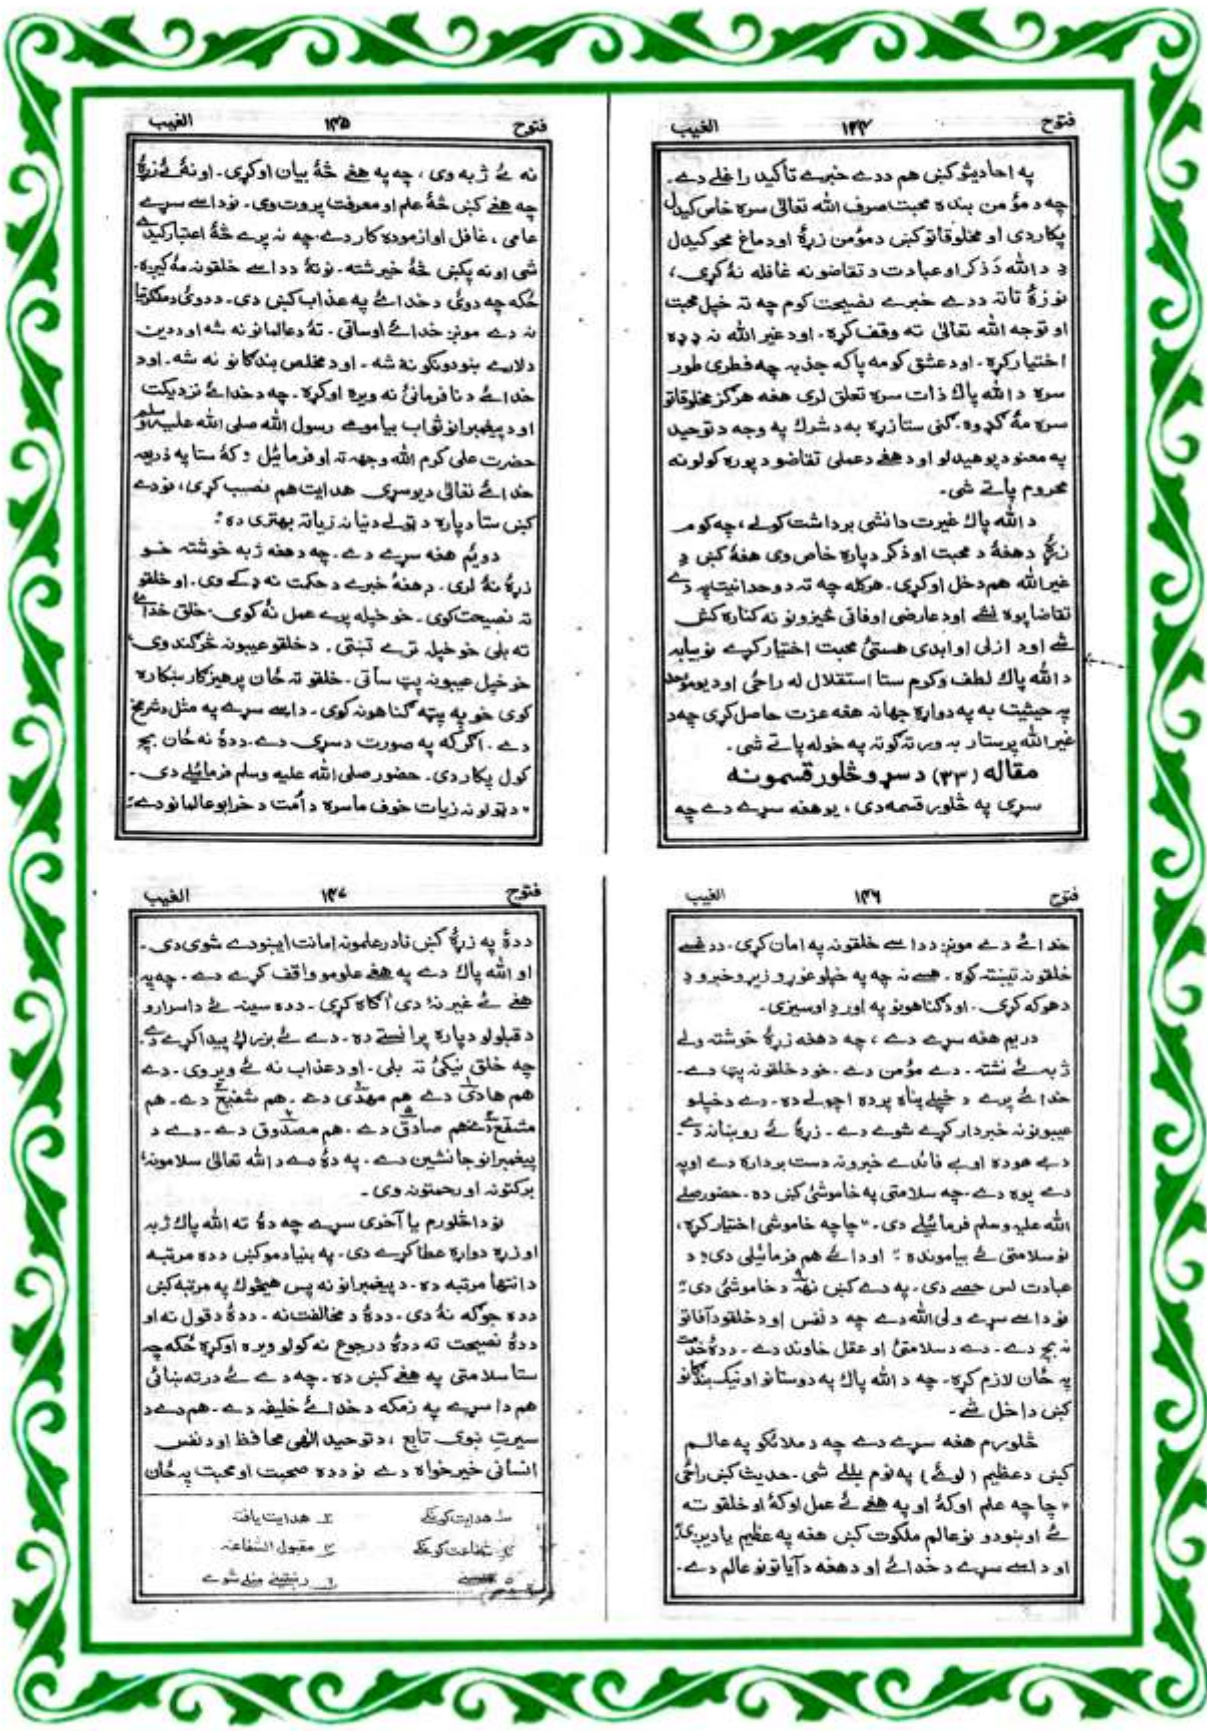 فتوح ۱۴۴ الغیب
په احادیثو کښ هم ددے خبرے تأکید راغلے دے۔
چه د مؤمن بنده محبت صرف الله تعالیٰ سره خاص کیدل
پکار دی او مخلوقاتو کښ د مؤمن زړۀ او دماغ محو کیدل
دِ د الله دَ ذکر او عبادت د تقاضو نه غافله نۀ کړی،
نو زۀ تا ته ددے خبرے نصیحت کوم چه ته خپل محبت
او توجه الله تعالیٰ ته وقف کړه۔ او د غیر الله نه ډډه
اختیار کړه۔ او د عشق کومه پاکه جذبه چه فطری طور
سره د الله پاك ذات سره تعلق لری هغه هرګز مخلوقاتو
سره مۀ ګډوه۔ ګنی ستا زړه به د شرك په وجه د توحید
په معنو د پوهیدلو او د هغے د عملی تقاضو د پوره کولو نه
محروم پاتے شی۔
د الله پاك غیرت دا نشی برداشت کولے، چه کوم
زړۀ د هغۀ د محبت او ذکر دپاره خاص وی هغۀ کښ دِ
غیر الله هم دخل اوکړی۔ هرکله چه ته د وحدانیت په دے
تقاضا پوه شے او د عارضی او فانی څیزونو نه کناره کش
شے او د ازلی او ابدی هستئ محبت اختیار کړے نو بیا به
د الله پاك لطف و کرم ستا استقلال له راځی او د یو مؤحد
په حیثیت به په دواړه جهانه هغه عزت حاصل کړی چه د
غیر الله پرستار به ورته ګوته په خوله پاتے شی۔
مقاله (۳۳) د سړو څلور قسمونه
سړی په څلور قسمه دی، یو هغه سړے دے چه
فتوح ۱۴۵ الغیب
نه ئے ژبه وی، چه په هغے څۀ بیان اوکړی۔ او نۀ ئے زړۀ
چه هغے کښ څۀ علم او معرفت پروت وی۔ نو داسے سړے
عامی، غافل او ازموده کار دے۔ چه نه پرے څۀ اعتبار کیدے
شی او نه پکښ څۀ خیر شته۔ نو تۀ د داسے خلقو نه مۀ کیږه۔
ځکه چه دوئ د خدائے په عذاب کښ دی۔ د دوئ د ملګرتیا
نه دے مونږ خدائے اوساتی۔ تۀ د عالمانو نه شه او د دین
د لارے ښودونکو نه شه۔ او د مخلص بندګانو نه شه۔ او د
خدائے د نافرمانئ نه ویره اوکړه۔ چه د خدائے نزدیکت
او د پیغمبرانو ثواب بیامومے رسول الله صلی الله علیه وسلم
حضرت علی کرم الله وجهه ته اوفرمائیل ؤ کۀ ستا په ذریعه
خدائے تعالیٰ د یو سړی هدایت هم نصیب کړی، نو دے
کښ ستا دپاره د ټولے دنیا نه زیاته بهتری ده۔
دویم هغه سړے دے۔ چه د هغه ژبه خو شته خو
زړۀ نۀ لری۔ د هغۀ خبرے د حکمت نه ډکے وی۔ او خلقو
ته نصیحت کوی۔ خو خپله پرے عمل نۀ کوی۔ خلق خدائے
ته بلی خو خپله ترے تښتی۔ د خلقو عیبونه څرګندوی،
خو خپل عیبونه پټ ساتی۔ خلقو ته ځان پرهیزګار ښکاره
کوی خو په پټه ګناهونه کوی۔ داسے سړے په مثل د شرمخ
دے۔ اګر که په صورت د سړی دے۔ ددۀ نه ځان بچ
کول پکار دی۔ حضور صلی الله علیه وسلم فرمائیلے دی۔
"د ټولو نه زیات خوف ما سره د اُمت د خرابو عالمانو دے"
فتوح ۱۴۶ الغیب
خدائے دے مونږ د داسے خلقو نه په امان کړی۔ د دغسے
خلقو نه تیښته کوه۔ هسے نه چه په خپلو غوړو زیړو خبرو دِ
دهوکه کړی۔ او د ګناهونو په اور دِ اوسیزی۔
دریم هغه سړے دے، چه د هغه زړۀ خو شته ولے
ژبه ئے نشته۔ دے مؤمن دے۔ خو د خلقو نه پټ دے۔
خدائے پرے د خپلے پناه پرده اچولے ده۔ دے د خپلو
عیبونو نه خبردار کړے شوے دے۔ زړۀ ئے روښانه دے۔
د بے هوده او بے فائدے خبرو نه دست برداره دے او په
دے پوه دے چه سلامتی په خاموشئ کښ ده۔ حضور صلی
الله علیه وسلم فرمائیلے دی۔ "چا چه خاموشی اختیار کړه،
نو سلامتی ئے بیامونده" او دائے هم فرمائیلی دی: د
عبادت لس حصے دی۔ په دے کښ نهه د خاموشئ دی"
نو داسے سړے ولی الله دے چه د نفس او د خلقو د آفاتو
نه بچ دے۔ دے د سلامتئ او عقل خاوند دے۔ ددۀ خدمت
په ځان لازم کړه۔ چه د الله پاك په دوستانو او نیک بندګانو
کښ داخل شے۔
څلورم هغه سړے دے چه د ملائکو په عالم
کښ د عظیم (لوئے) په نوم بللے شی۔ حدیث کښ راځی
"چا چه علم اوکۀ او په هغے ئے عمل اوکۀ او خلقو ته
ئے اوښودو نو عالم ملکوت کښ هغه په عظیم یادیږی"
او داسے سړے د خدائے او د هغه د آیاتونو عالم دے۔
فتوح ۱۴۷ الغیب
ددۀ په زړۀ کښ نادر علمونه امانت ایښودے شوی دی۔
او الله پاك دے په هغے علومو واقف کړے دے۔ چه په
هغے ئے غیر نۀ دی آګاه کړی۔ ددۀ سینه ئے د اسرارو
د قبلولو دپاره پرانستے ده۔ دے ئے پیدا کړے دے۔
چه خلق نیکئ ته بلی۔ او د عذاب نه ئے ویروی۔ دے
هم هادی دے هم مهدی دے۔ هم شفیع دے۔ هم
مشفع دے هم صادق دے۔ هم مصدوق دے۔ دے د
پیغمبرانو جانشین دے۔ په دۀ دے د الله تعالیٰ سلامونه
برکتونه او رحمتونه وی۔
نو دا څلورم یا آخری سړے چه دۀ ته الله پاك ژبه
او زړه دواړه عطا کړے دی۔ په بنیادمو کښ ددۀ مرتبه
د انتها مرتبه ده۔ د پیغمبرانو نه پس هیڅوك په مرتبه کښ
ددۀ جوګه نۀ دی۔ ددۀ د مخالفت نه۔ ددۀ د قول نه او
ددۀ نصیحت ته ددۀ د رجوع نه کولو ویره اوکړه ځکه چه
ستا سلامتی په هغے کښ ده۔ چه دے ئے درته ښائی
هم دا سړے په زمکه د خدائے خلیفه دے۔ هم دے د
سیرتِ نبوی تابع، د توحید الٰهی محافظ او د نفس
انسانی خیر خواه دے نو ددۀ صحبت او محبت په ځان
۱ هدایت کونکے ۲ هدایت یافته
۳ شفاعت کونکے ۴ مقبول الشفاعه
۵ ۶ رښتینے منلے شوے